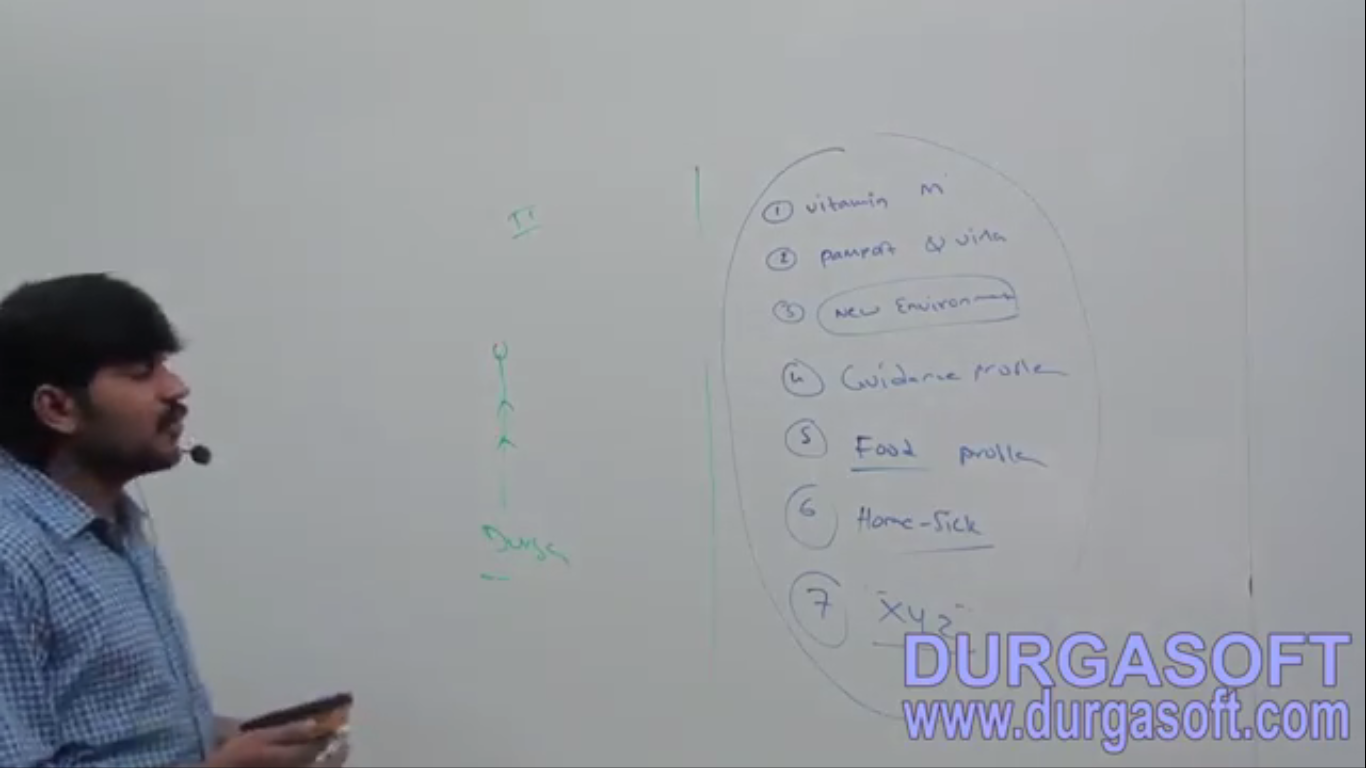 IT
Durga
① vitamin M
② passport & visa
③ New Environment
④ Guidance problem
⑤ Food problem
⑥ Home-Sick
⑦ xyz
DURGASOFT
www.durgasoft.com